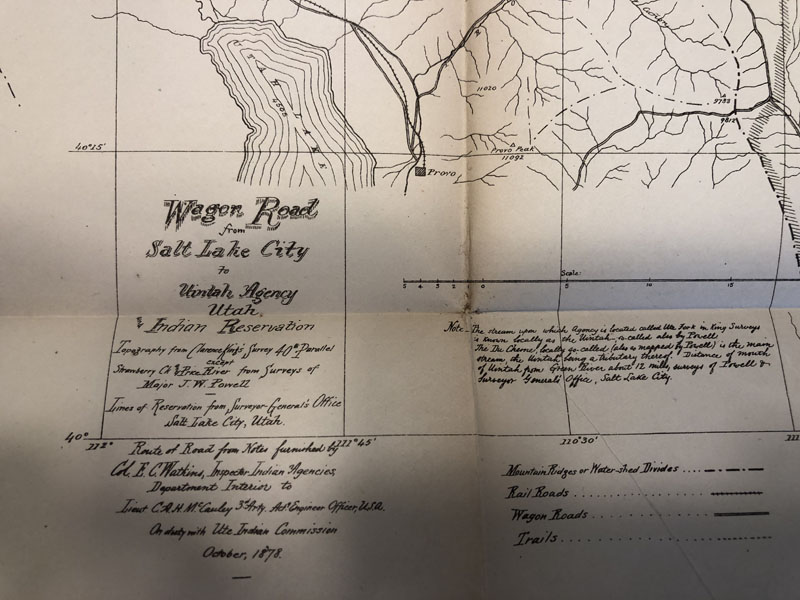 UTAH LAKE
4500
11020
9783
9812
40°15'
Provo Peak
11092
Provo
Wagon Road
from
Salt Lake City
to
Uintah Agency
Utah.
& Indian Reservation
Topography from Clarence King's Survey 40th Parallel
except
Strawberry Ck & Price River from Surveys of
Major J. W. Powell
Lines of Reservation from Surveyor General's Office
Salt Lake City, Utah.
Scale:
5 4 3 2 1 0 5 10 15
Note - The stream upon which Agency is located called Ute Fork in King Surveys
is known locally as the Uintah so called also by Powell
The Du Chesne, locally so called (also is mapped by Powell) is the main
stream the Uintah being a tributary thereof. Distance of mouth
of Uintah from Green River about 12 miles, surveys of Powell &
Surveyor General's Office, Salt Lake City.
40°
112°
111°45'
110°30'
111
Route of Road from Notes furnished by
Col. E. C. Watkins, Inspector Indian Agencies,
Department Interior to
Lieut C.A.H. McCauley 3d Arty. Actg Engineer Officer, U.S.A.
On duty with Ute Indian Commission
October, 1878.
Mountain Ridges or Water-shed Divides ....
Rail Roads
Wagon Roads
Trails